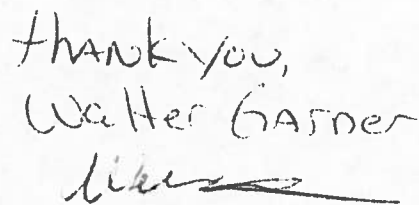 thANK YOU,
Walter GArner